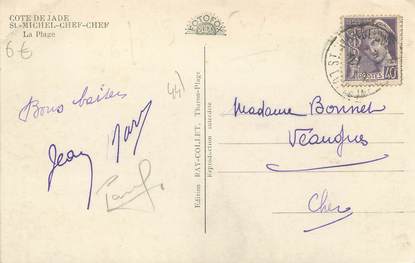 COTE DE JADE
St-MICHEL-CHEF-CHEF
La Plage
6€
FOTOFOX
POSTES
40
44)
Bons baisers
Jean Marc
Edition RAY-COLLET, Tharon-Plage
Reproduction interdite
Madame Bonnet
Veaugues
Cher